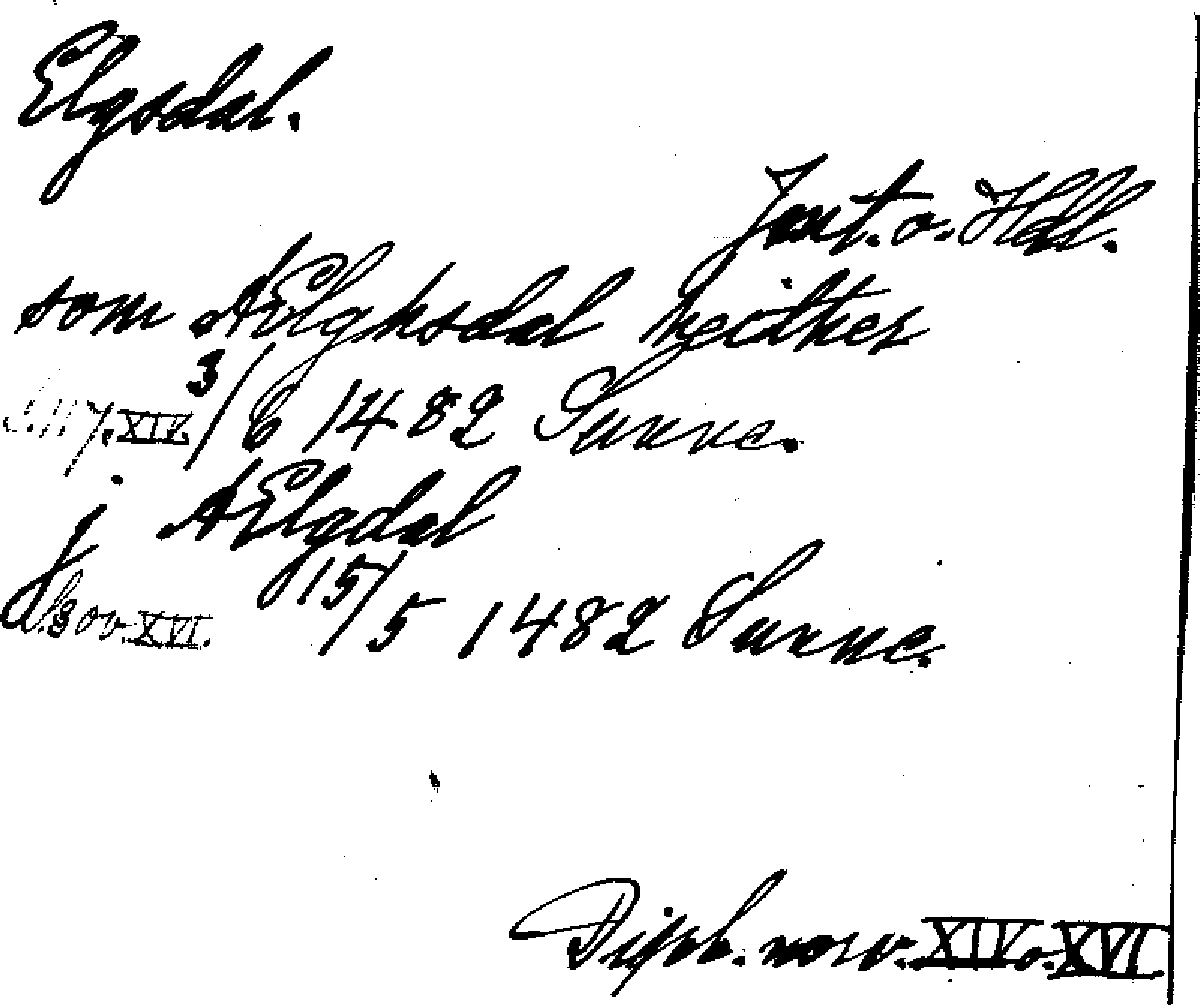 Elgsdal.
Jmt. o. Hdl.
som AElghsdal heither
s. 117. XIV. 3/6 1482 Sunne.
j AElgdal
s. 300. XVI. 15/5 1482 Sunne.
Dipl. norv. XIV o. XVI